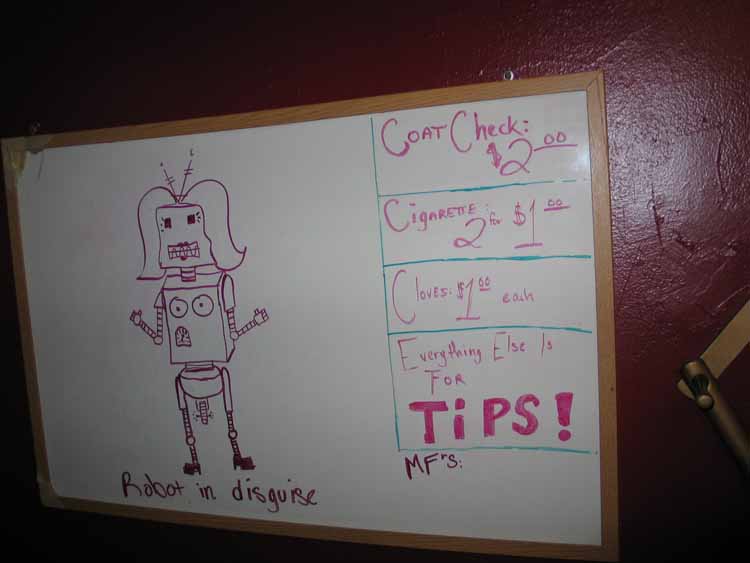 Coat Check:
$2.00
Cigarette:
2 for $1.00
Cloves: $1.00 each
Everything Else Is
For
TiPS!
MF'S:
Robot in disguise